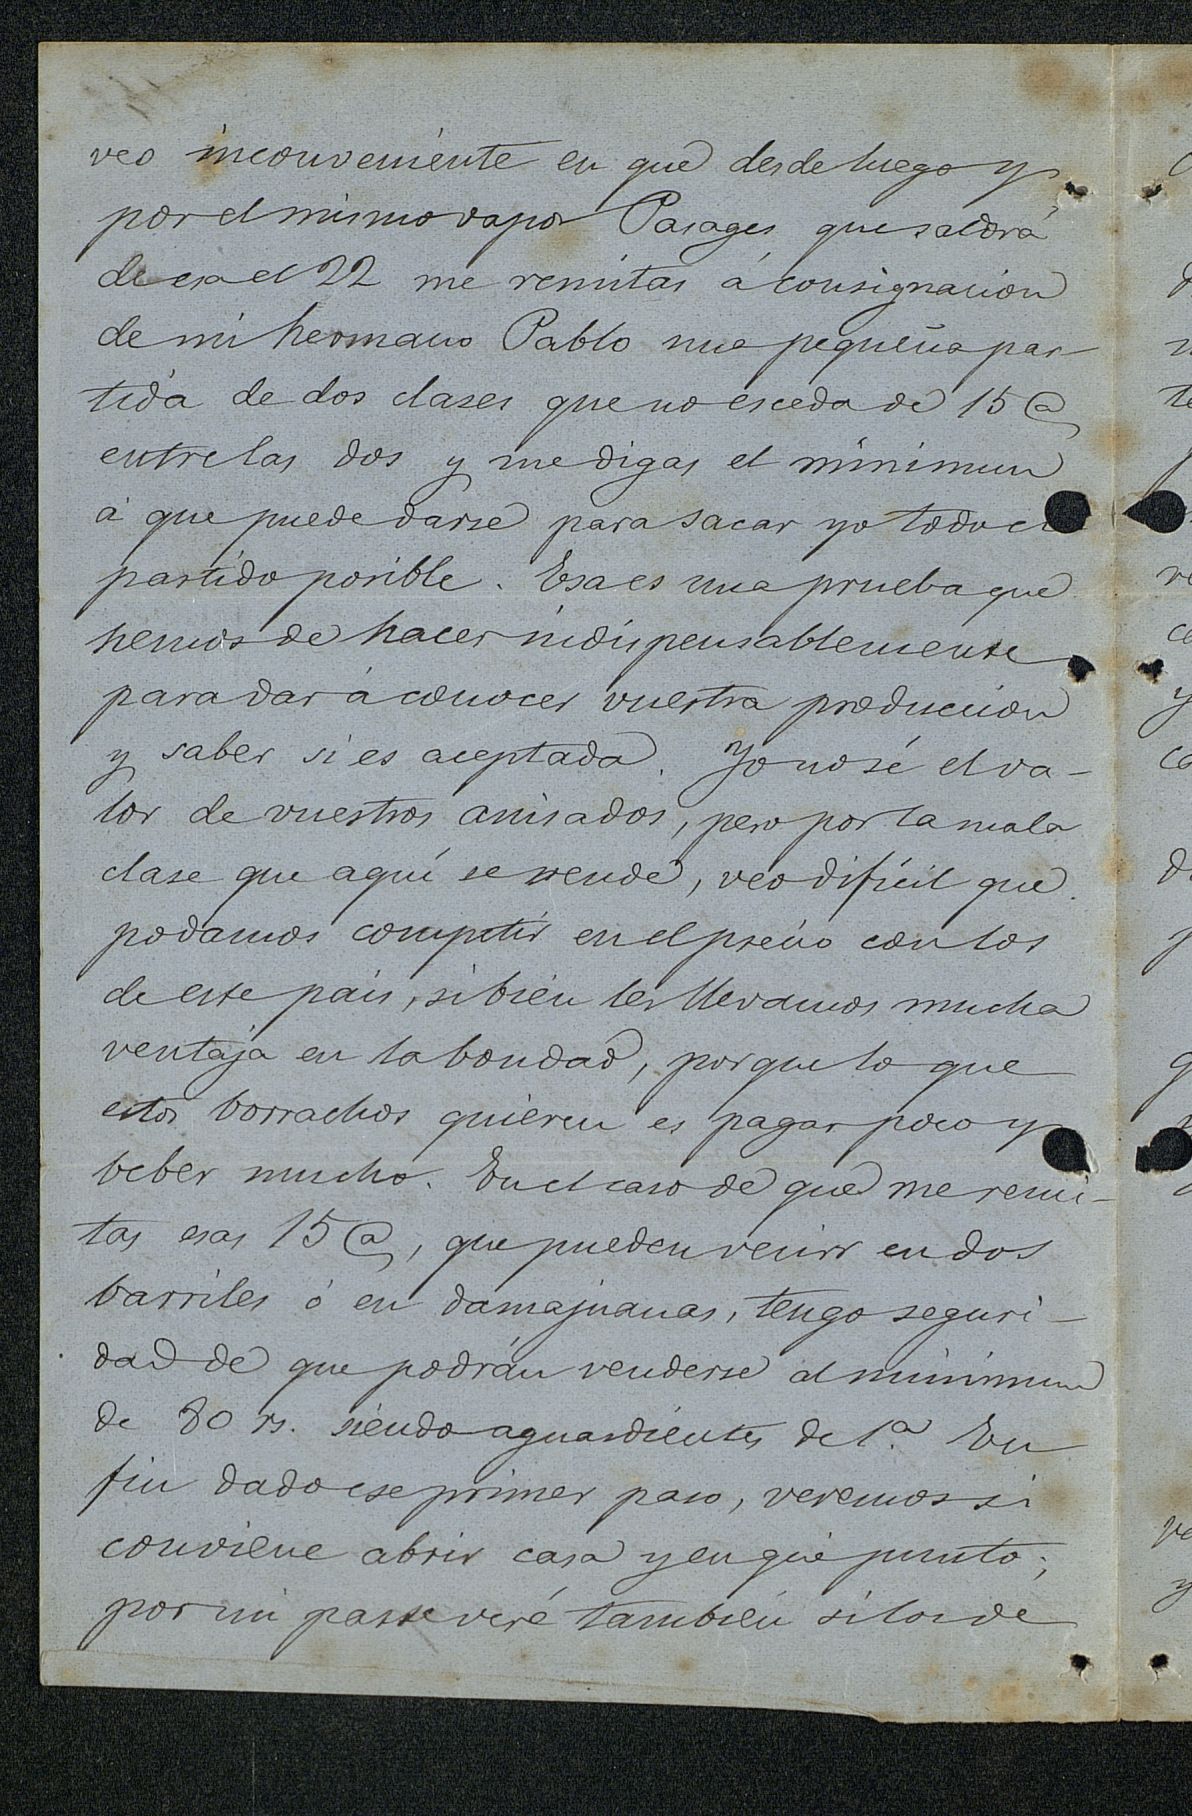 veo inconveniente en que desde luego y
por el mismo vapor Pasages que saldrá
de esa el 22 me remitas á consignacion
de mi hermano Pablo una pequeña par-
tida de dos clases que no esceda de 15 @
entre las dos y me digas el minimun
á que puede darse para sacar yo todo el
partido posible. Esa es una prueba que
hemos de hacer indispensablemente
para dar á conocer vuestra produccion
y saber si es aceptada. Yo no sé el va-
lor de vuestros anisados, pero por la mala
clase que aquí se vende, veo dificil que
podamos competir en el precio con los
de este pais, si bien les llevamos mucha
ventaja en la bondad, porque lo que
estos borrachos quieren es pagar poco y
beber mucho. En el caso de que me remi-
tas esas 15 @, que pueden venir en dos
barriles ó en damajuanas, tengo seguri-
dad de que podrán venderse al minimun
de 80 rs. siendo aguardientes de 1.ª En
fin dado ese primer paso, veremos si
conviene abrir casa y en qué punto;
por mi parte veré tambien si los de